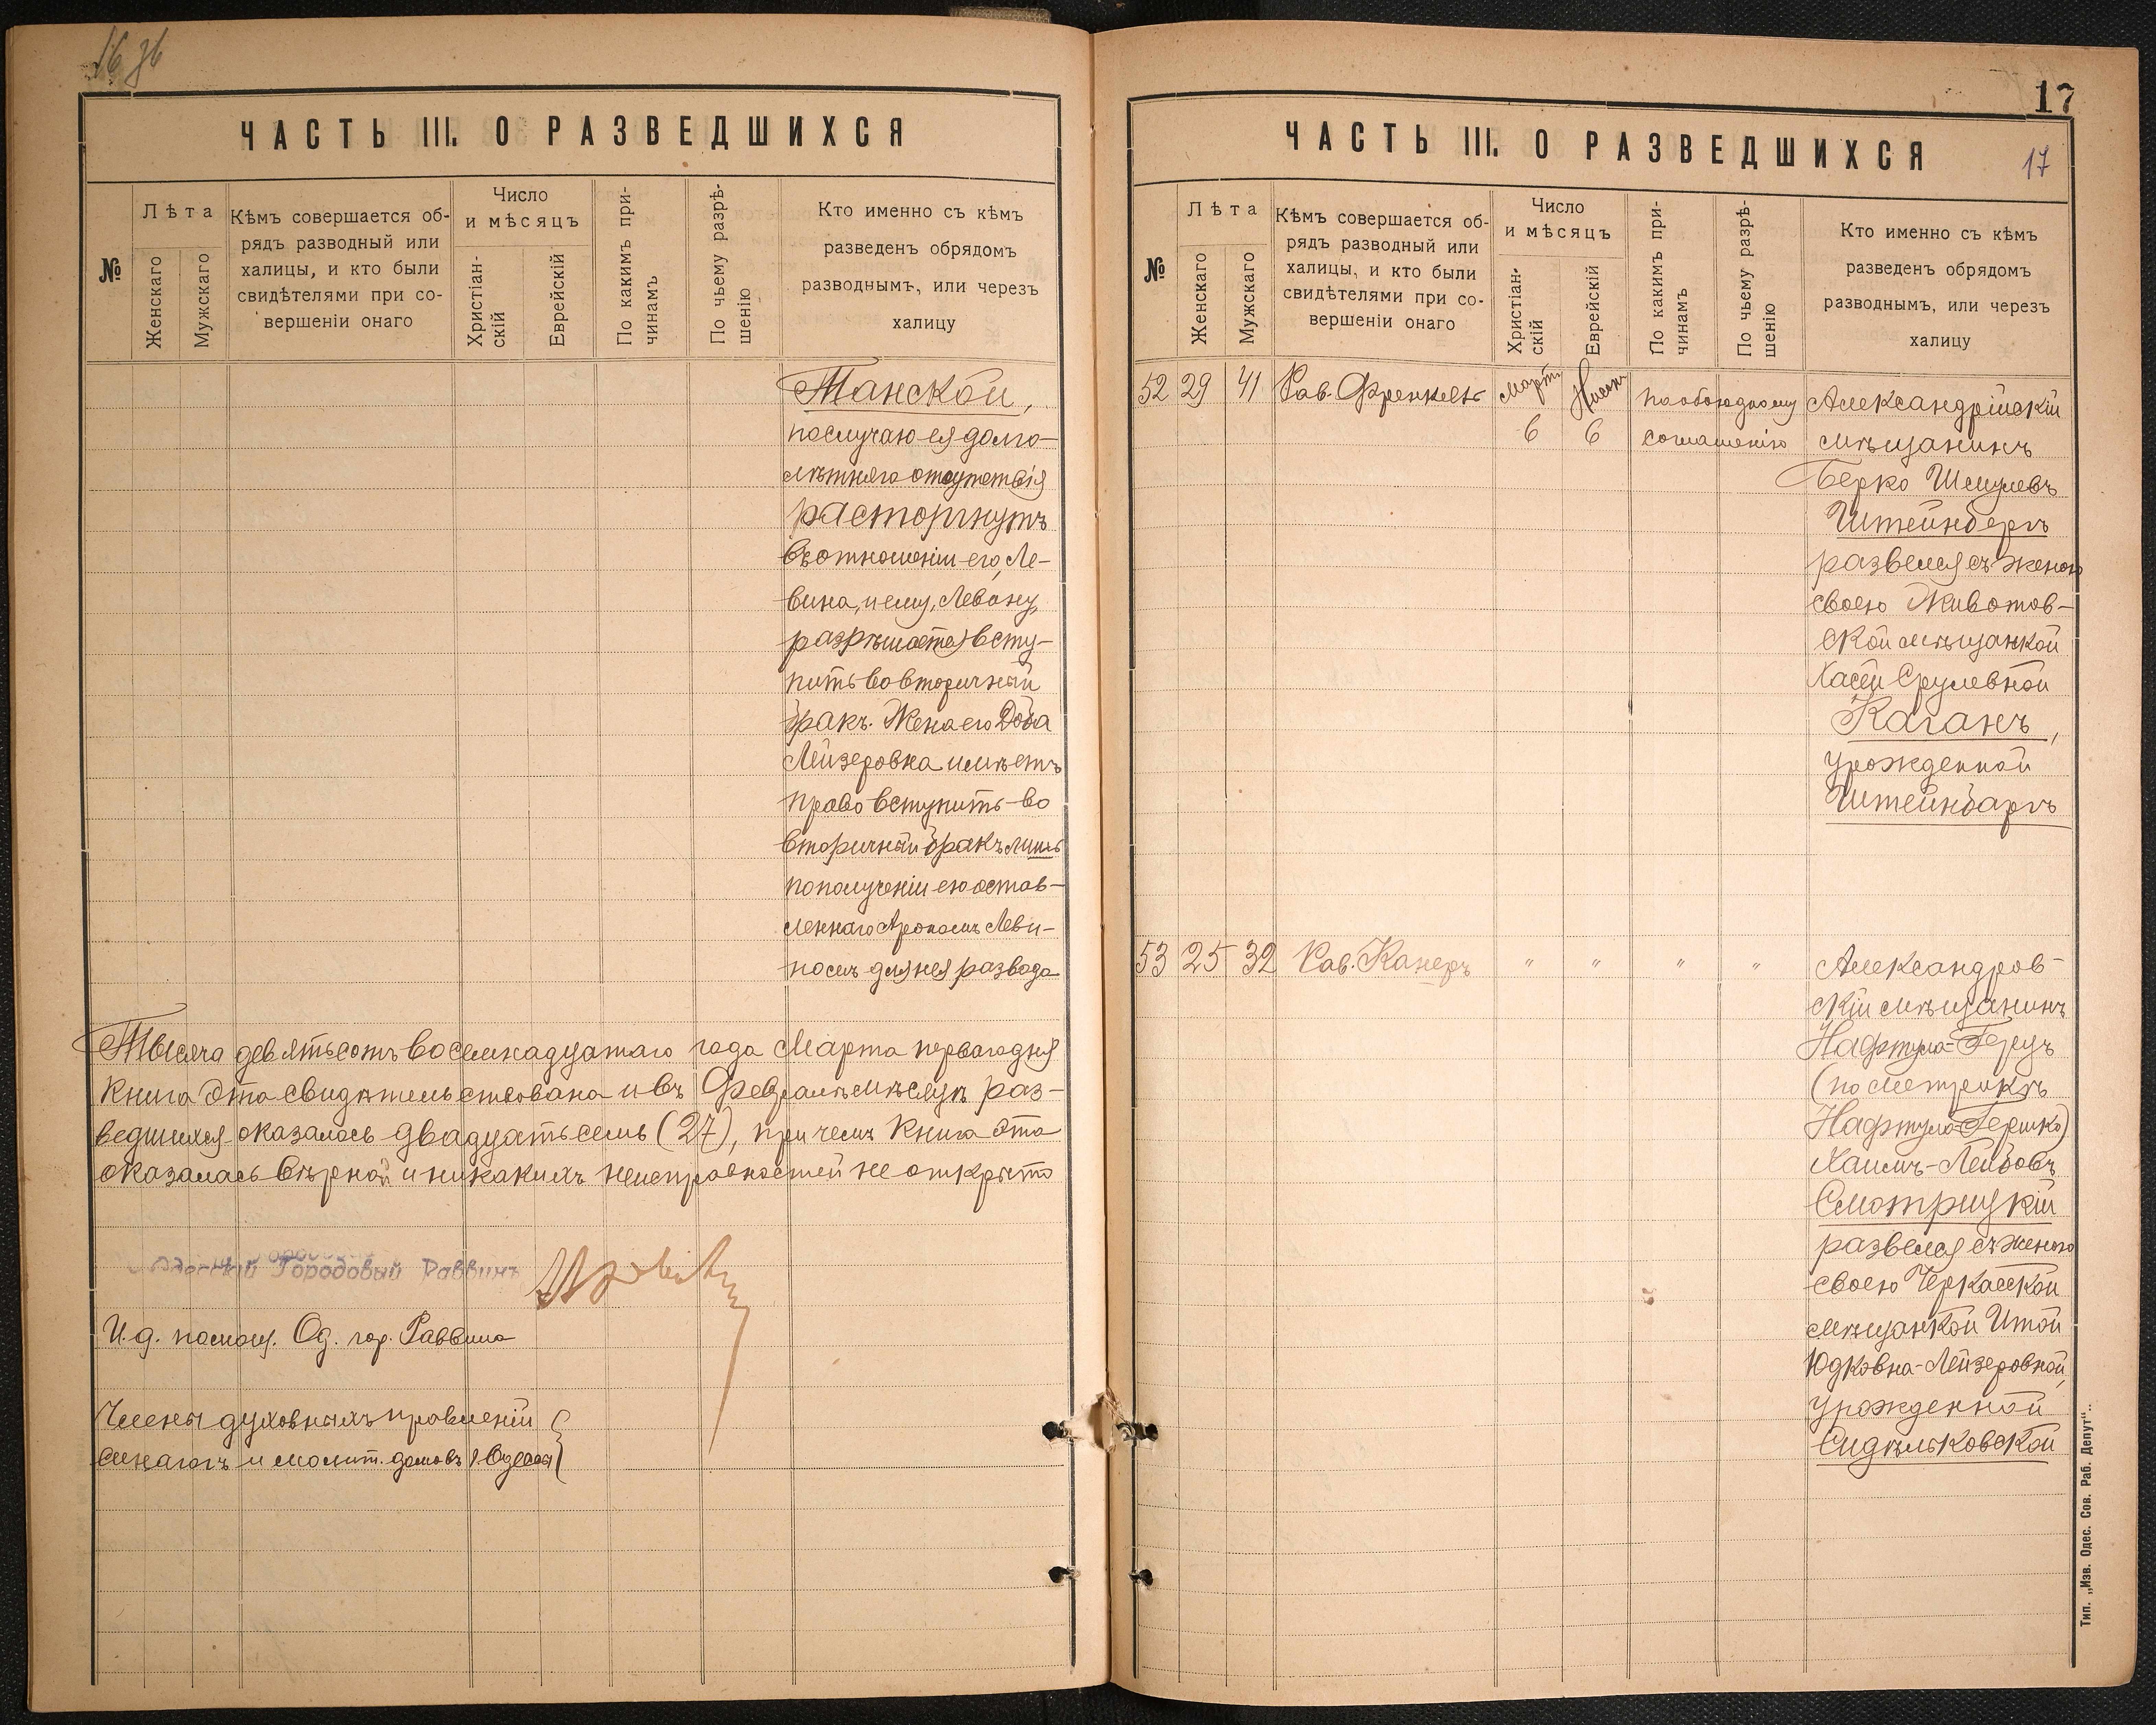 ЧАСТЬ III. О РАЗВЕДШИХСЯ
№
Лѣта
Женскаго
Мужскаго
Кѣмъ совершается об-
рядъ разводный или
халицы, и кто были
свидѣтелями при со-
вершеніи онаго
Число
и мѣсяцъ
Христіан-
скій
Еврейскій
По какимъ при-
чинамъ
По чьему разрѣ-
шенію
Кто именно съ кѣмъ
разведенъ обрядомъ
разводнымъ, или черезъ
халицу
Танской,
по случаю ея долго-
лѣтняго отсутствія
расторгнутъ
въ отношеніи его, Ле-
вина, и ему, Левину,
разрѣшается всту-
пить во вторичный
бракъ. Жена его Доба
Лейзеровна имѣетъ
право вступить во
вторичный бракъ лишь
по полученіи ею остав-
леннаго Арономъ Леви-
номъ для нея развода
Тысяча девятьсотъ восемнадцатаго года Марта перваго дня
книга эта свидѣтельствована и въ Февралѣ мѣсяцѣ раз-
ведшихся оказалось двадцать семь (27), при чемъ книга эта
оказалась вѣрной и никакихъ неисправностей не открыто
Городовый Раввинъ
И. д. помощ. Од. гор. Раввина
Члены духовныхъ правленій
синагогъ и молит. домовъ г. Одессы
17
ЧАСТЬ III. О РАЗВЕДШИХСЯ
17
№
Лѣта
Женскаго
Мужскаго
Кѣмъ совершается об-
рядъ разводный или
халицы, и кто были
свидѣтелями при со-
вершеніи онаго
Число
и мѣсяцъ
Христіан-
скій
Еврейскій
По какимъ при-
чинамъ
По чьему разрѣ-
шенію
Кто именно съ кѣмъ
разведенъ обрядомъ
разводнымъ, или черезъ
халицу
52 29 41 Рав. Френкель Мартъ 6 Нисан 6 по обоюдному соглашенію
Александрійскій
мѣщанинъ
Берко Шмулевъ
Штейнбергъ
развелся съ женою
своею Животов-
ской мѣщанкой
Хасей Срулевной
Каганъ,
урожденной
Штейнбаргъ
53 25 32 Рав. Канеръ " " " "
Александров-
скій мѣщанинъ
Нафтула-Герцъ
(по метрикѣ
Нафтула-Гершко)
Хаимъ-Лейбовъ
Смотрицкій
развелся съ женою
своею Черкасской
мѣщанкой Итой
Юдковна-Лейзеровной,
урожденной
Сидѣльковской
Тип. „Изв. Одес. Сов. Раб. Депут“.